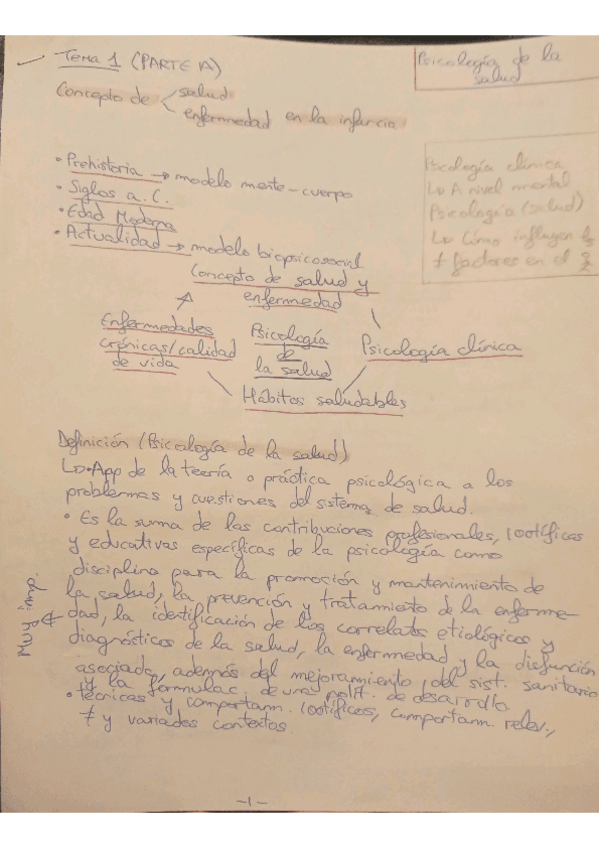 Tema 1 (PARTE A)
Psicología de la
salud
Concepto de < salud
enfermedad en la infancia
• Prehistoria → modelo mente-cuerpo
• Siglos a.C.
• Edad Moderna
• Actualidad → modelo biopsicosocial
Psicología clínica
↳ A nivel mental
Psicología (salud)
↳ Cómo influyen ls
≠ factores en el
Concepto de salud y
enfermedad
Enfermedades
crónicas/calidad
de vida
Psicología
de
la salud
Psicología clínica
Hábitos saludables
Definición (Psicología de la salud)
↳• App de la teoría o práctica psicológica a los
problemas y cuestiones del sistema de salud.
• Es la suma de las contribuciones profesionales, 100tíficas
y educativas específicas de la psicología como
disciplina para la promoción y mantenimiento de
la salud, la prevención y tratamiento de la enferme-
dad, la identificación de los correlatos etiológicos y
diagnósticos de la salud, la enfermedad y la disfunción
asociada, además del mejoramiento del sist. sanitario
y la formulac. de una polít. de desarrollo
• técnicas y comportam. 100tíficos, comportam. relev.,
≠ y variados contextos
Muy imp.
-1-